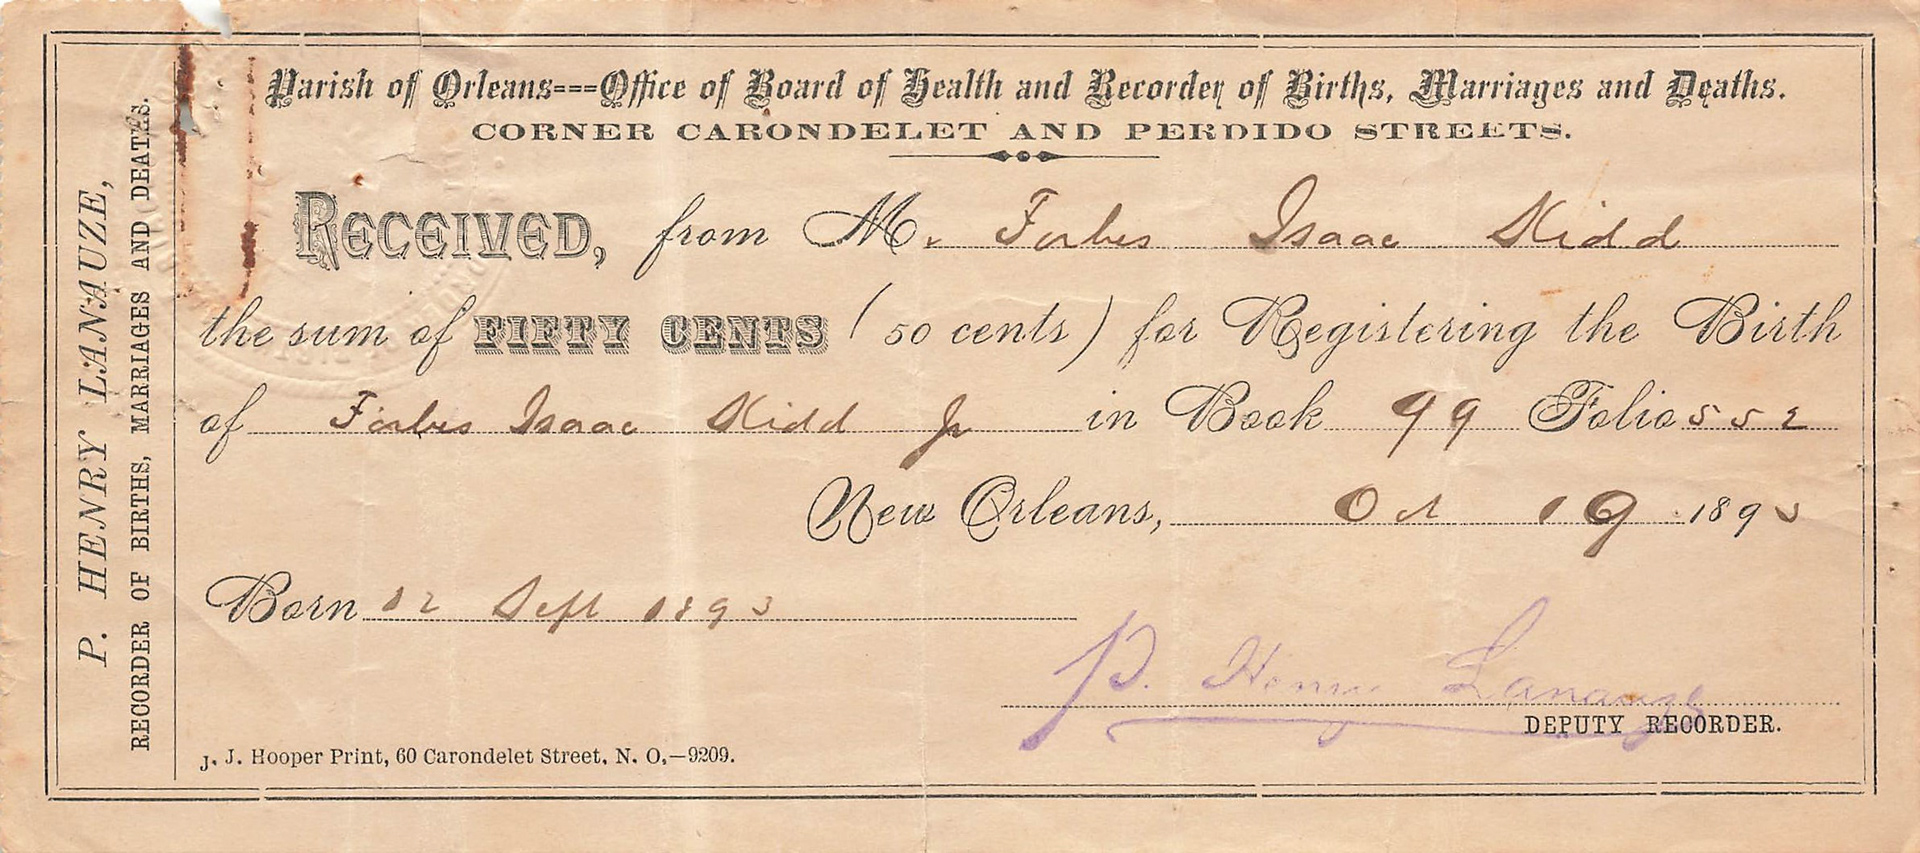 Parish of Orleans===Office of Board of Health and Recorder of Births, Marriages and Deaths.
CORNER CARONDELET AND PERDIDO STREETS.
RECEIVED, from M. Forbes Isaac Kidd
the sum of FIFTY CENTS (50 cents) for Registering the Birth
of Forbes Isaac Kidd Jr in Book 99 Folio 552
New Orleans, Oct 19 1893
Born 12 Sept 1893
P. Henry Lanauze
DEPUTY RECORDER.
J. J. Hooper Print, 60 Carondelet Street, N. O.—9209.
P. HENRY LANAUZE,
RECORDER OF BIRTHS, MARRIAGES AND DEATHS.